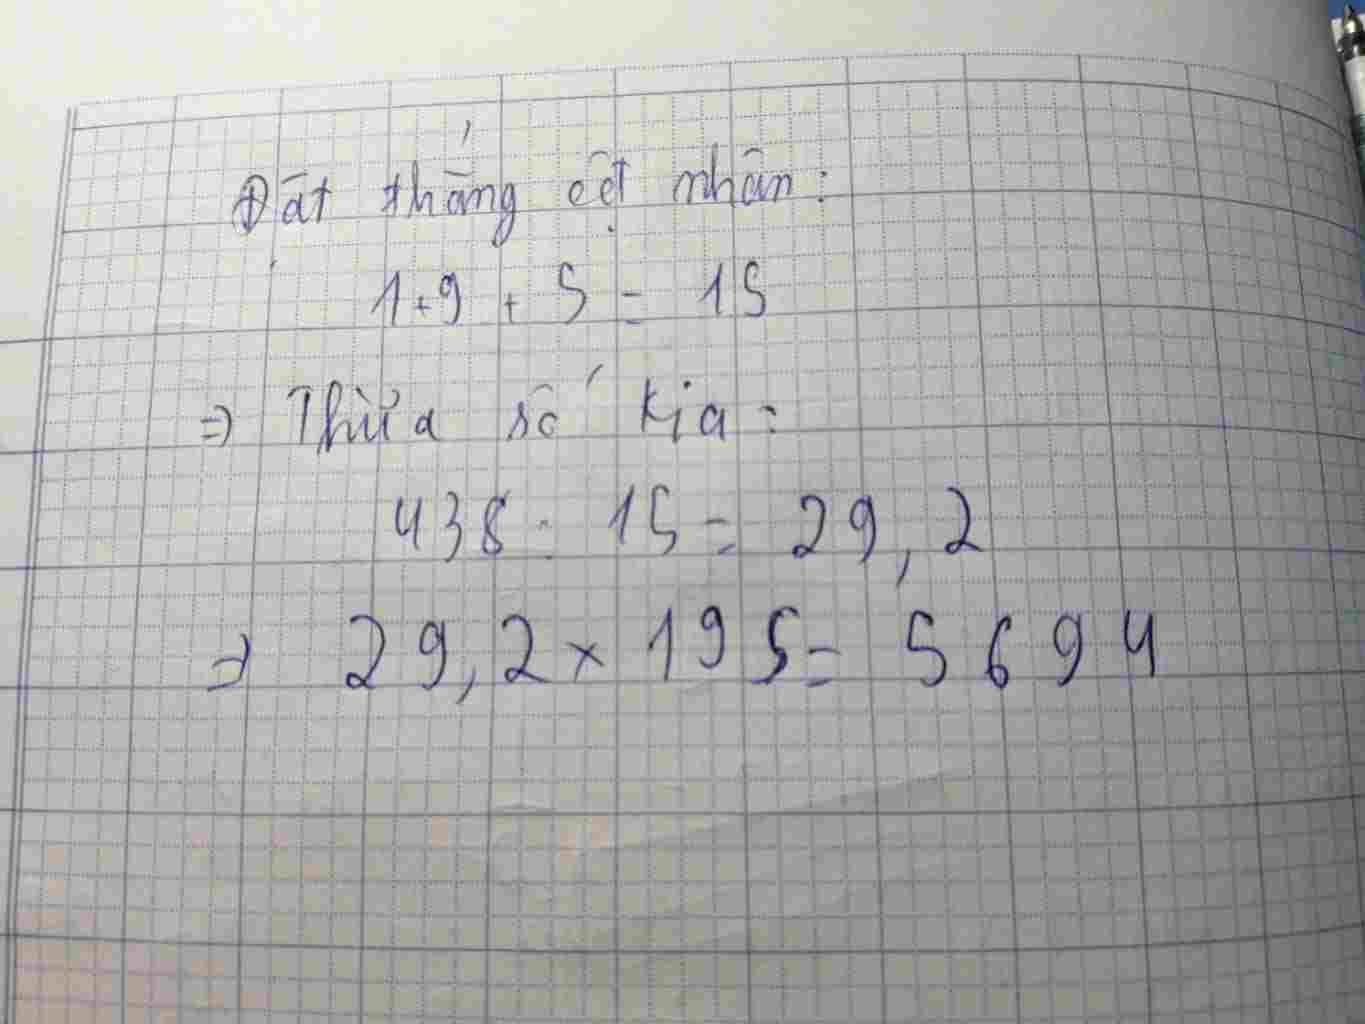 Đặt thẳng cột nhân:
1+9+5=15
=> Thừa số kia:
438:15=29,2
=> 29,2×195=5694